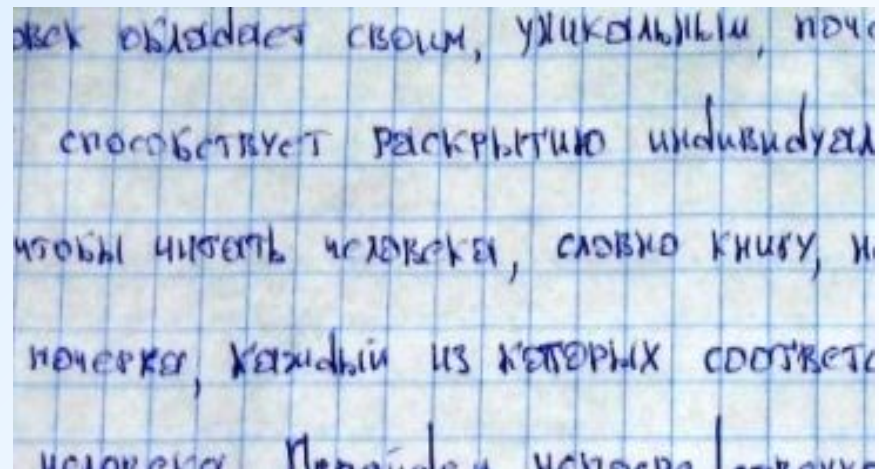 овек обладает своим, уникальным, поче
способствует раскрытию индивидуал
чтобы читать человека, словно книгу, не
почерка, каждый из которых соответс
человека